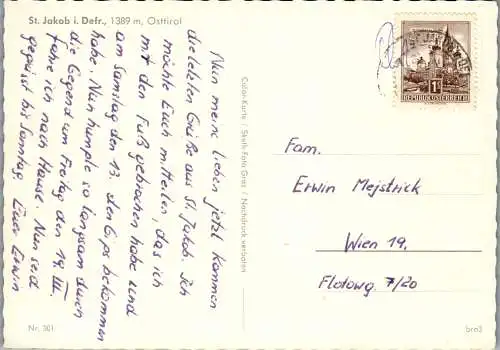 St. Jakob i. Defr., 1389 m, Osttirol
Nun meine lieben jetzt kommen
die letzten Grüße aus St. Jakob. Ich
möchte Euch mitteilen, das ich
mir den Fuß gebrochen habe und
am Samstag den 13. den Gips bekommen
habe. Nun humple so langsam durch
die Gegend um Freitag den 19. III.
fahre ich nach Hause. Nun seid
gegrüßt bis Sonntag Euer Erwin
Nr. 301
Color-Karte / Skuth Foto Graz / Nachdruck verboten
1S
REPUBLIK ÖSTERREICH
Fam.
Erwin Mejstrick
Wien 19.
Flotowg. 7/20
brn3